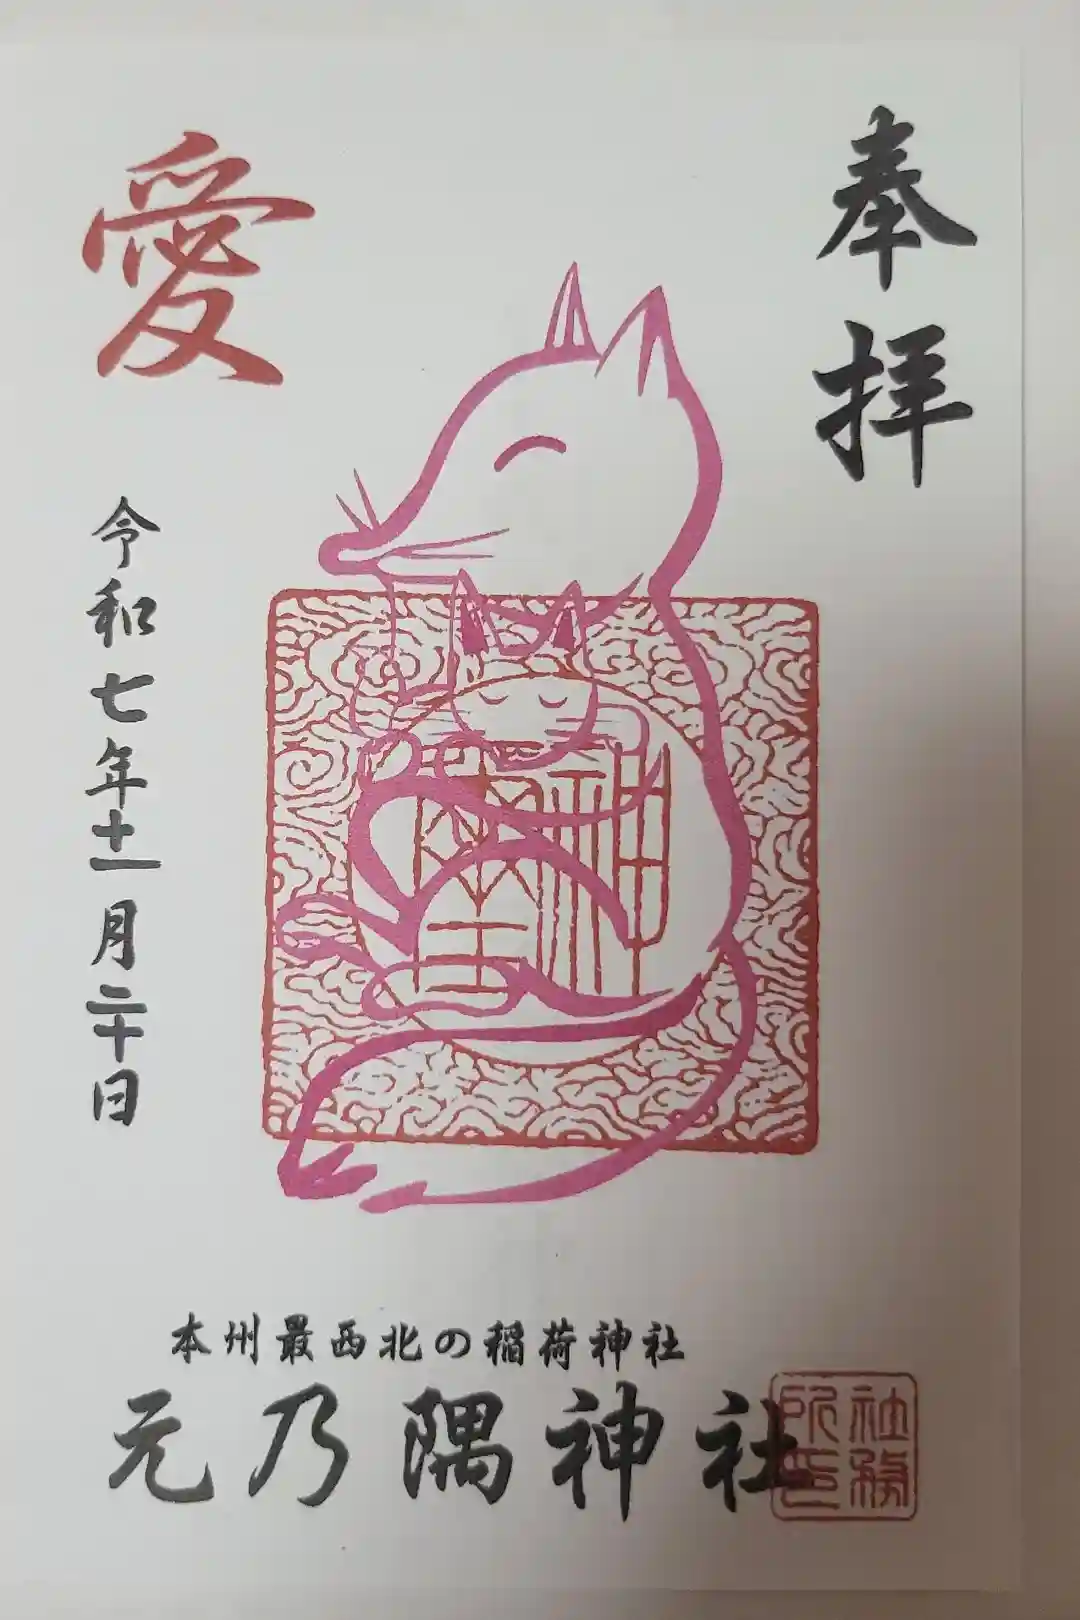 奉拝
愛
令和七年十一月二十日
本州最西北の稲荷神社
元乃隅神社
社務所印